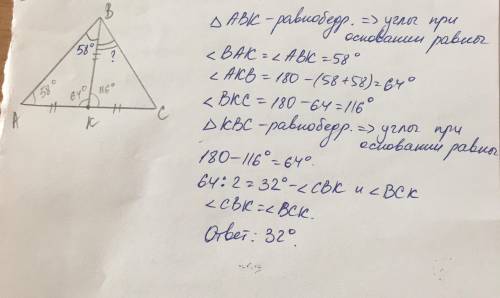 B
58°
?
58°
64°
116°
A
K
C
△ ABK - равнобедр. => углы при
основании равны
∠BAK = ∠ABK = 58°
∠AKB = 180 - (58 + 58) = 64°
∠BKC = 180 - 64 = 116°
△ KBC - равнобедр. => углы при
основании равны
180 - 116° = 64°.
64 : 2 = 32° - ∠CBK и ∠BCK
∠CBK = ∠BCK.
Ответ: 32°.